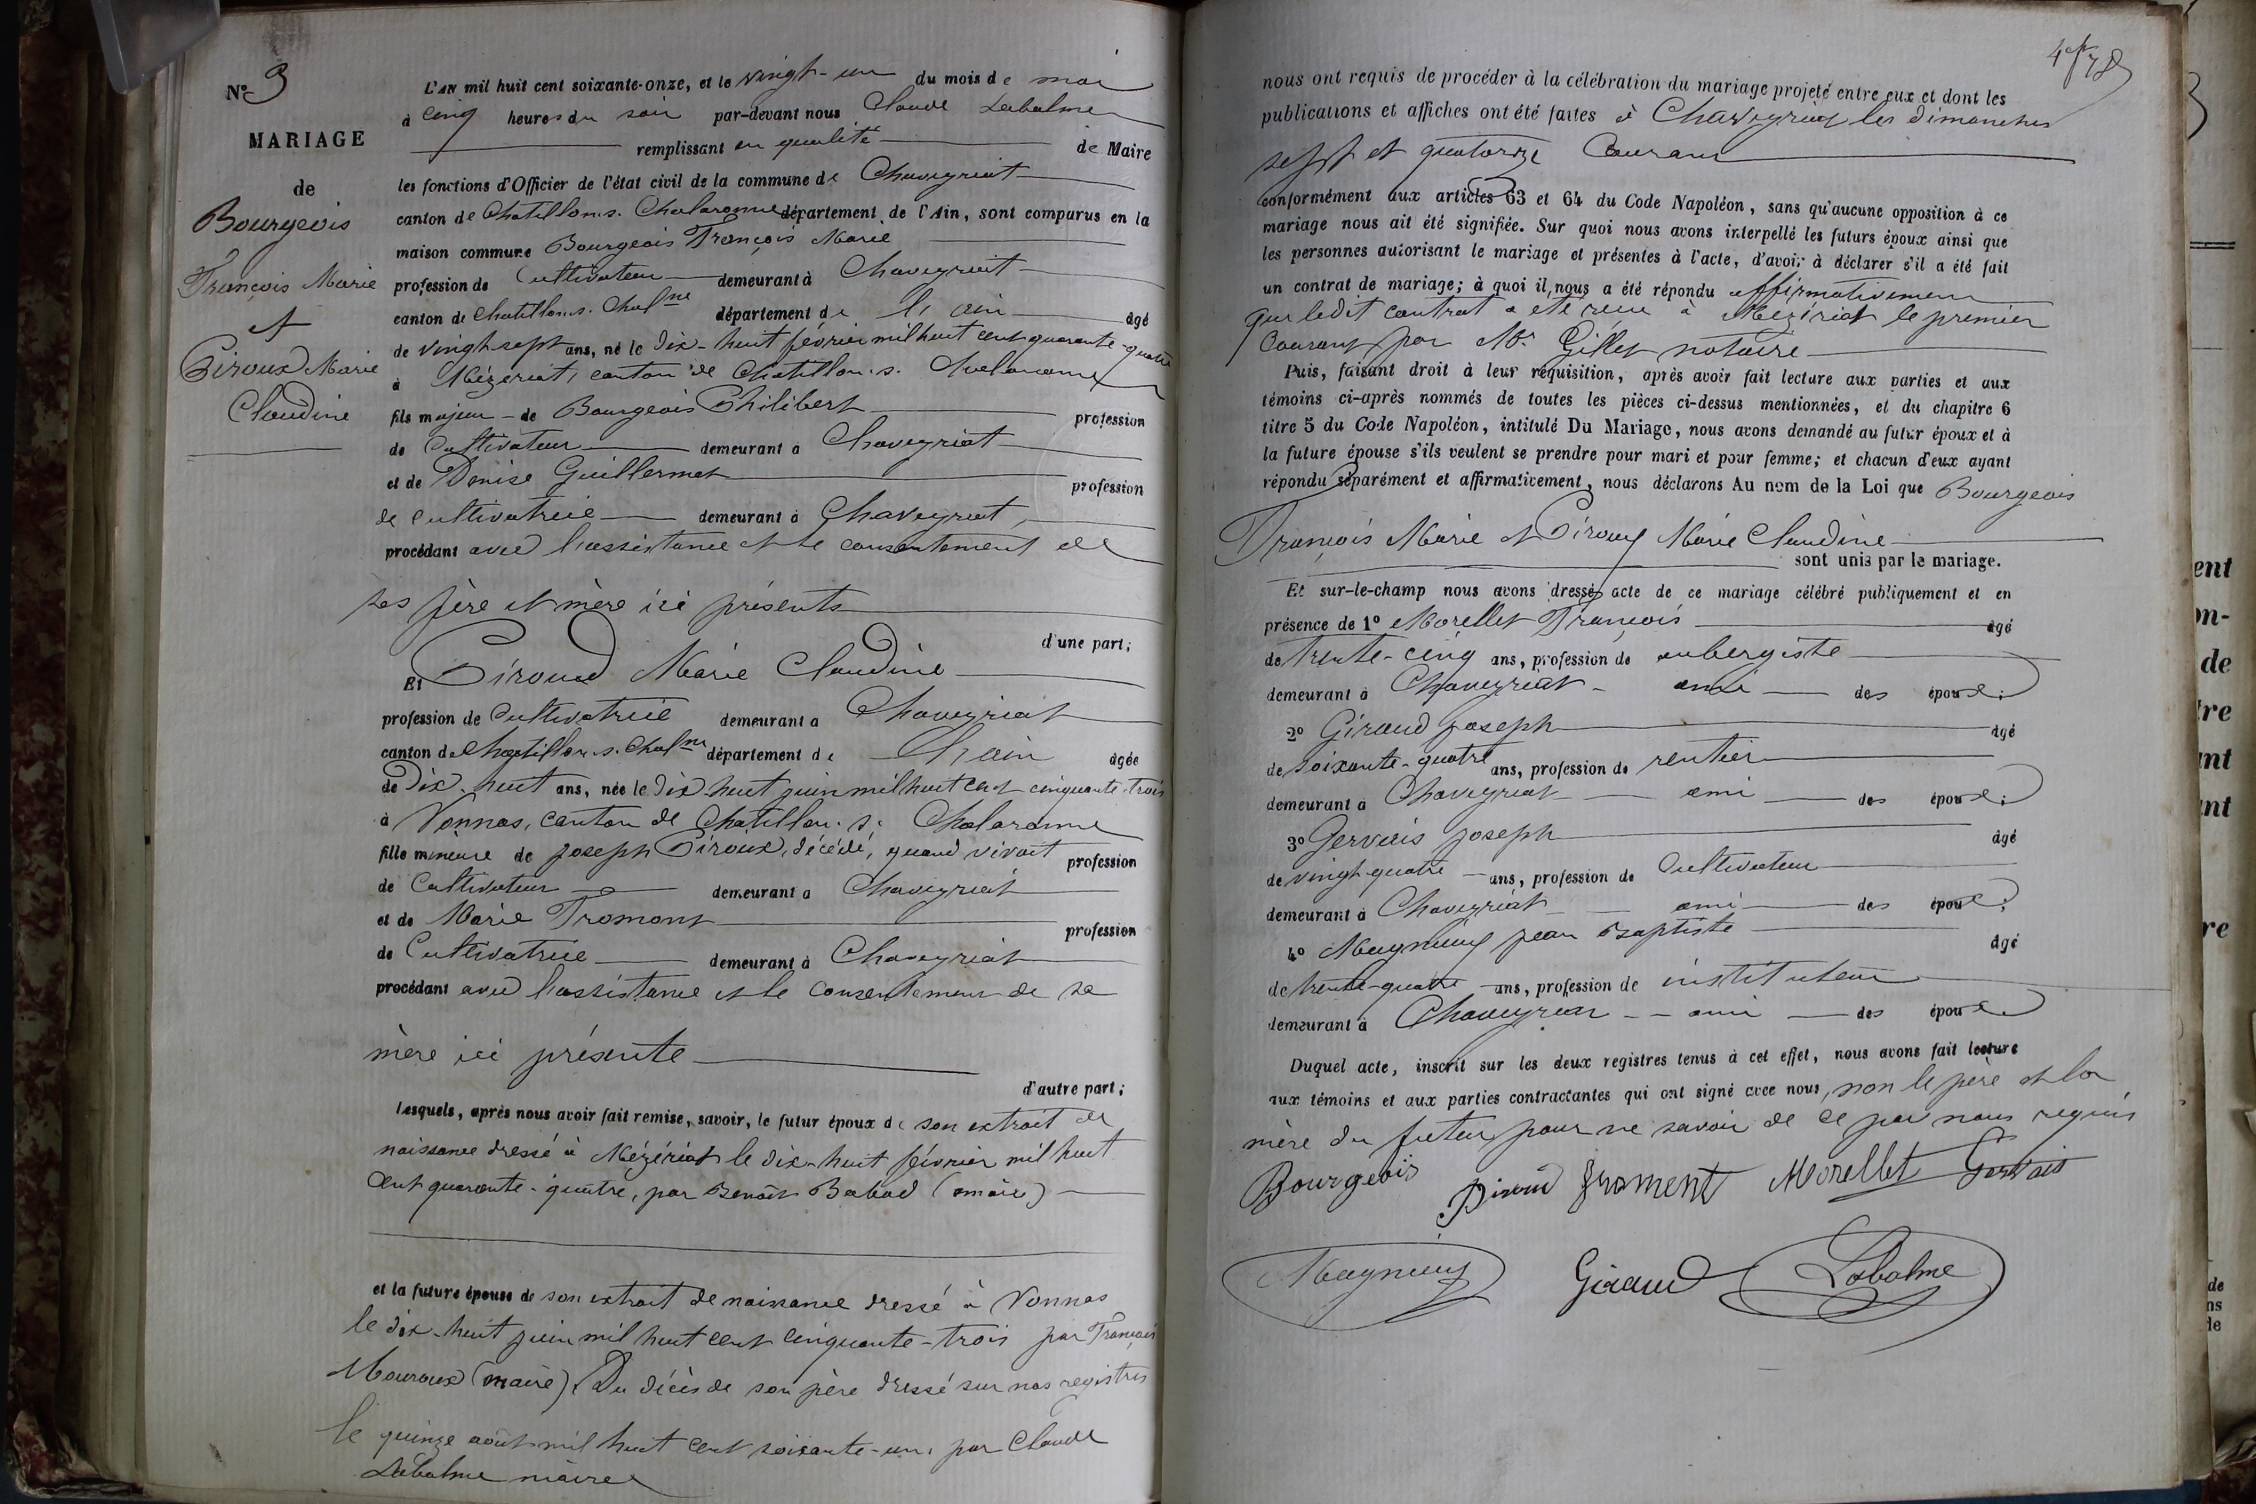 N° 3
MARIAGE
de
Bourgeois
François Marie
et
Piroux Marie
Claudine
L'AN mil huit cent soixante-onze, et le vingt-un du mois de mai
à cinq heures du soir par-devant nous Claude Labalme
remplissant en qualité de Maire
les fonctions d'Officier de l'état civil de la commune de Chaveyriat
canton de Chatillon s. Chalaronne département de l'Ain, sont comparus en la
maison commune Bourgeois François Marie
profession de Cultivateur demeurant à Chaveyriat
canton de Chatillon s. Chalne département de l'ain âgé
de vingt-sept ans, né le dix-huit février mil huit cent quarante-quatre
à Mézériat, canton de Chatillon s. Chalaronne
fils majeur de Bourgeois Philibert profession
de Cultivateur demeurant à Chaveyriat
et de Denise Guillermet profession
de cultivatrice demeurant à Chaveyriat,
procédant avec l'assistance et le consentement de
ses père et mère ici présents
d'une part;
Et Piroud Marie Claudine
profession de Cultivatrice demeurant à Chaveyriat
canton de Chatillon s. Chalne département de l'ain âgée
de Dix-huit ans, née le dix-huit juin mil huit cent cinquante-trois
à Vonnas, canton de Chatillon s. Chalaronne
fille mineure de Joseph Piroux, décédé, quand vivait profession
de Cultivateur demeurant à Chaveyriat
et de Marie Fromont profession
de Cultivatrice demeurant à Chaveyriat
procédant avec l'assistance et le consentement de sa
mère ici présente
d'autre part;
Lesquels, après nous avoir fait remise, savoir, le futur époux de son extrait de
naissance dressé à Mézériat le dix-huit février mil huit
cent quarante-quatre, par Benoît Babad (maire)
et la future épouse de son extrait de naissance dressé à Vonnas
le dix-huit juin mil huit cent cinquante-trois par François
Mouroux (maire). Du décès de son père dressé sur nos registres
le quinze août mil huit cent soixante-un, par Claude
Labalme maire
nous ont requis de procéder à la célébration du mariage projeté entre eux et dont les
publications et affiches ont été faites à Chaveyriat les dimanches
sept et quatorze Courant
conformément aux articles 63 et 64 du Code Napoléon, sans qu'aucune opposition à ce
mariage nous ait été signifiée. Sur quoi nous avons interpellé les futurs époux ainsi que
les personnes autorisant le mariage et présentes à l'acte, d'avoir à déclarer s'il a été fait
un contrat de mariage; à quoi il nous a été répondu affirmativement
que ledit contrat a été reçu à Mézériat le premier
Courant par Me Gillet notaire
Puis, faisant droit à leur réquisition, après avoir fait lecture aux parties et aux
témoins ci-après nommés de toutes les pièces ci-dessus mentionnées, et du chapitre 6
titre 5 du Code Napoléon, intitulé Du Mariage, nous avons demandé au futur époux et à
la future épouse s'ils veulent se prendre pour mari et pour femme; et chacun d'eux ayant
répondu séparément et affirmativement, nous déclarons Au nom de la Loi que Bourgeois
François Marie et Piroux Marie Claudine
sont unis par le mariage.
Et sur-le-champ nous avons dressé acte de ce mariage célébré publiquement et en
présence de 1° Morellet François âgé
de trente-cinq ans, profession de aubergiste
demeurant à Chaveyriat ami des époux;
2° Giraud Joseph âgé
de soixante-quatre ans, profession de rentier
demeurant à Chaveyriat ami des époux;
3° Gervais Joseph âgé
de vingt-quatre ans, profession de Cultivateur
demeurant à Chaveyriat ami des époux;
4° Magnieux Jean Baptiste âgé
de trente-quatre ans, profession de instituteur
demeurant à Chaveyriat ami des époux
Duquel acte, inscrit sur les deux registres tenus à cet effet, nous avons fait lecture
aux témoins et aux parties contractantes qui ont signé avec nous, non le père et la
mère du futur pour ne savoir de ce par nous requis
Bourgeois Piroud Froment Morellet Gervais
Magnieux Giraud Labalme